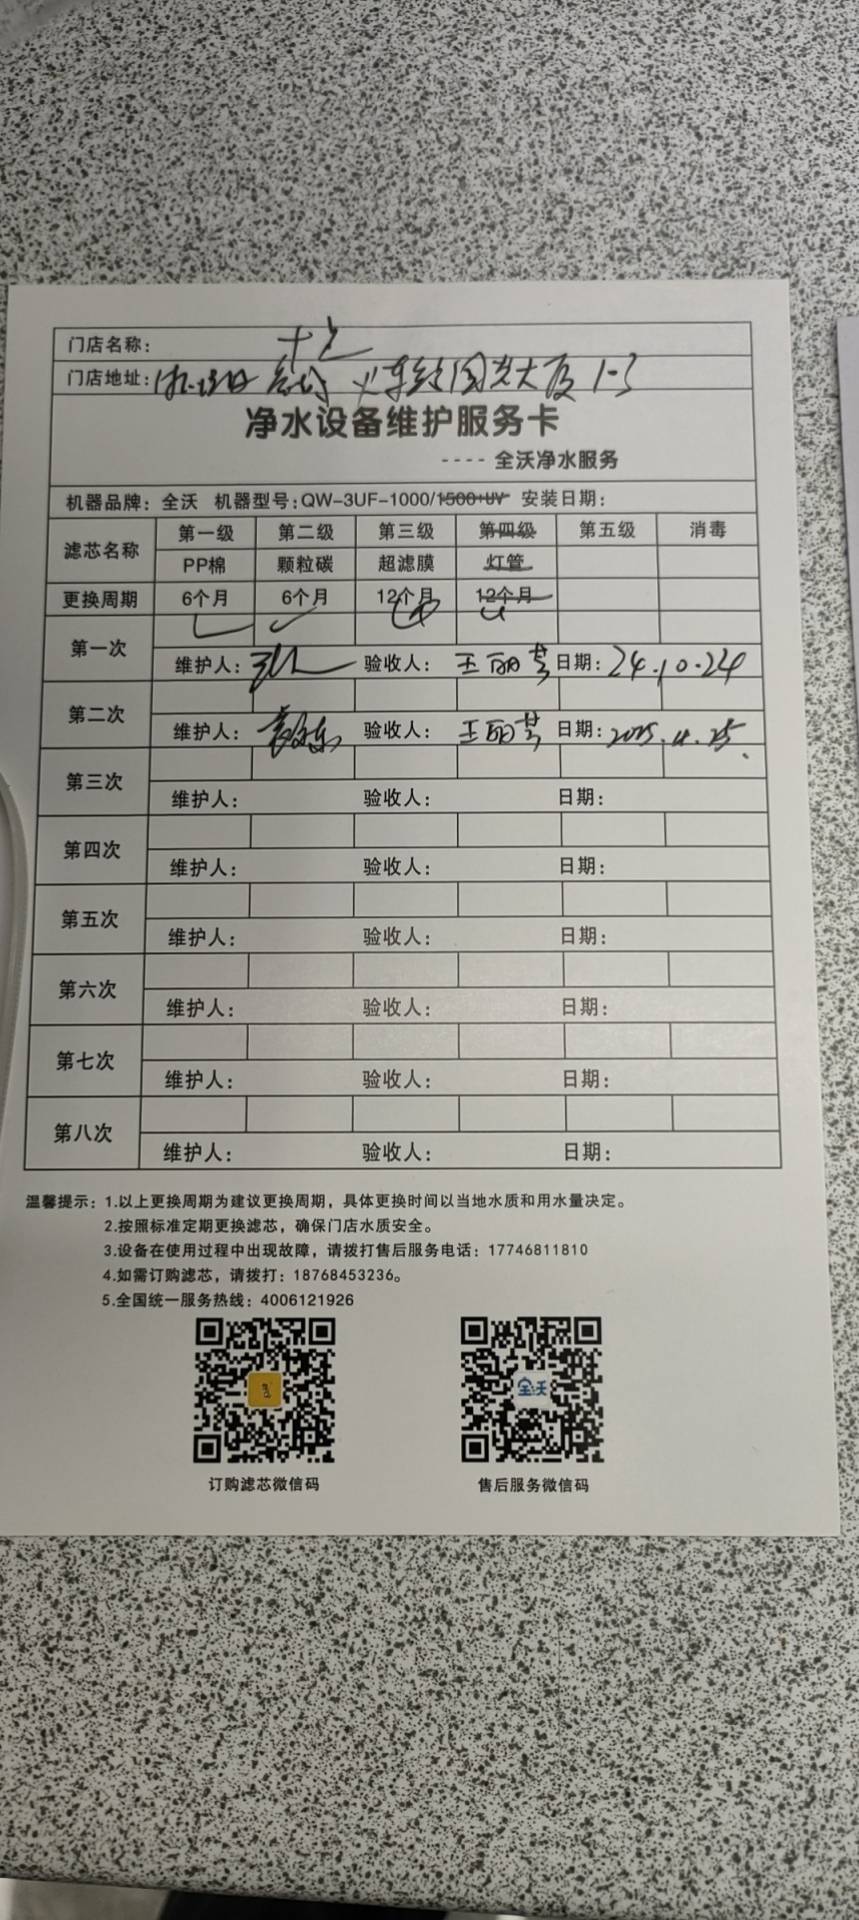 门店名称：
门店地址： 大厦 1-3
净水设备维护服务卡
---- 全沃净水服务
机器品牌：全沃 机器型号：QW-3UF-1000/1500+UV 安装日期：
滤芯名称 第一级 第二级 第三级 第四级 第五级 消毒
PP棉 颗粒碳 超滤膜 灯管
更换周期 6个月 6个月 12个月 12个月
第一次
维护人： 验收人：王丽芳 日期：24.10.24
第二次
维护人： 验收人：王丽芳 日期：2025.4.25.
第三次
维护人： 验收人： 日期：
第四次
维护人： 验收人： 日期：
第五次
维护人： 验收人： 日期：
第六次
维护人： 验收人： 日期：
第七次
维护人： 验收人： 日期：
第八次
维护人： 验收人： 日期：
温馨提示：1.以上更换周期为建议更换周期，具体更换时间以当地水质和用水量决定。
2.按照标准定期更换滤芯，确保门店水质安全。
3.设备在使用过程中出现故障，请拨打售后服务电话：17746811810
4.如需订购滤芯，请拨打：18768453236。
5.全国统一服务热线：4006121926
全沃
订购滤芯微信码 售后服务微信码